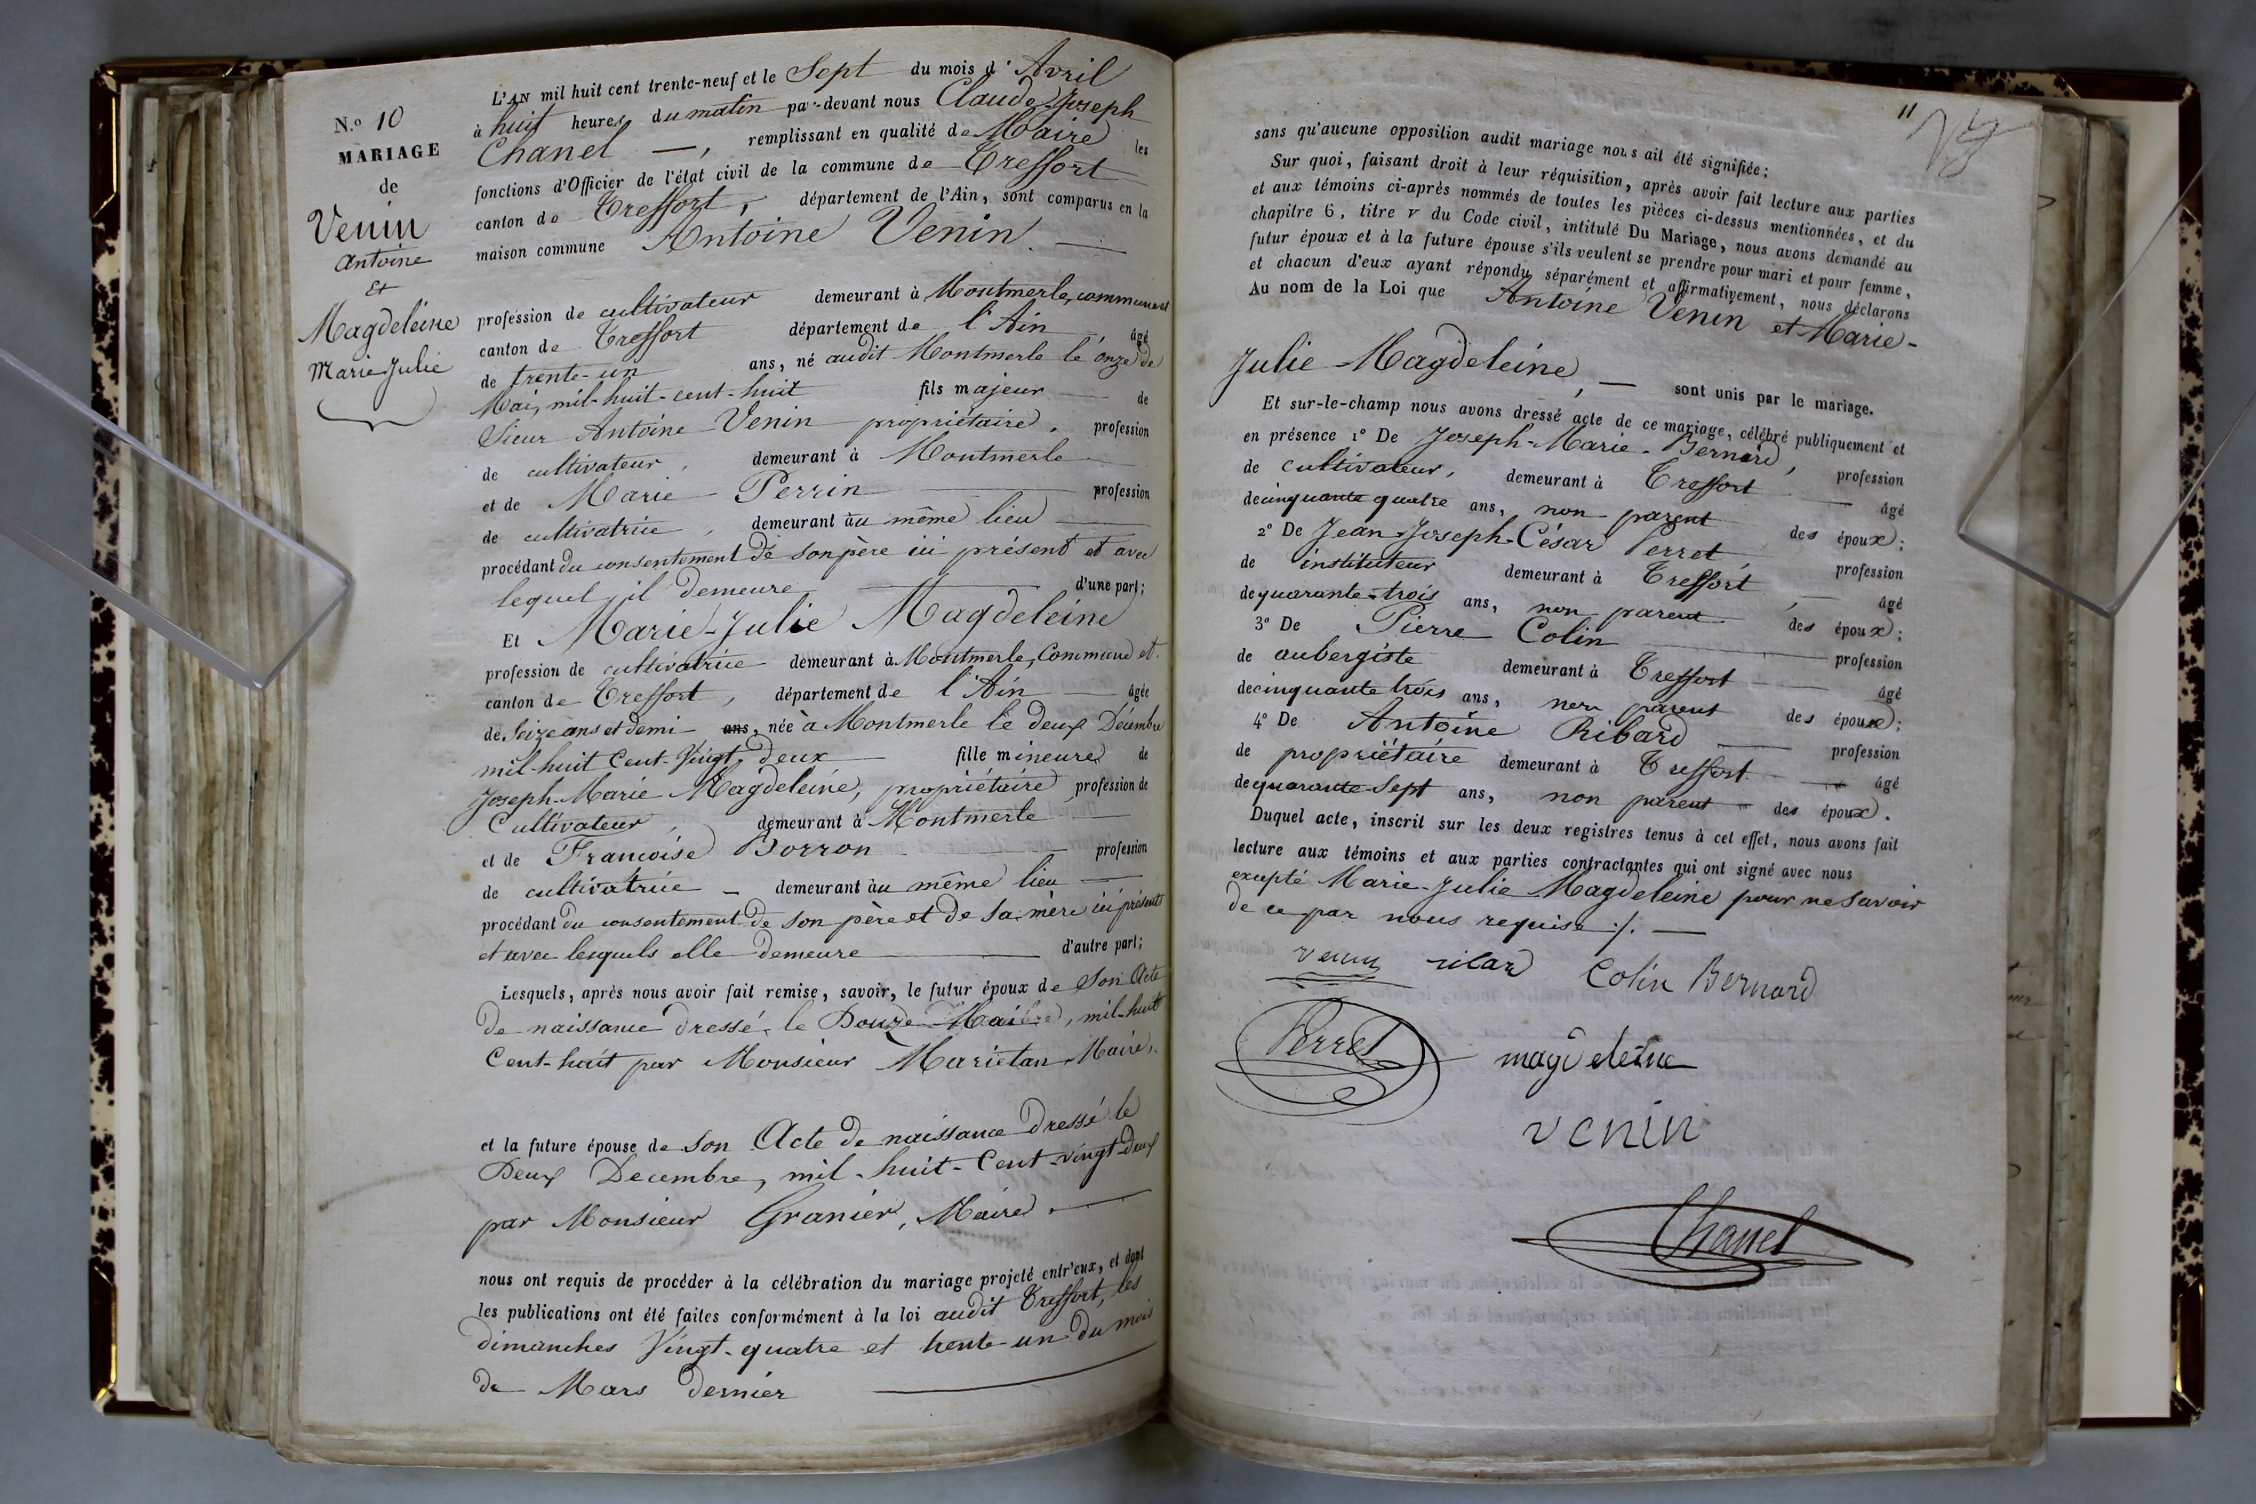 N.o 10
MARIAGE
de
Venin
Antoine
Et
Magdeleine
Marie Julie
L'AN mil huit cent trente-neuf et le Sept du mois d'Avril
à huit heures du matin par-devant nous Claude-Joseph
Chanel —, remplissant en qualité de Maire les
fonctions d'Officier de l'état civil de la commune de Treffort
canton de Treffort, département de l'Ain, sont comparus en la
maison commune Antoine Venin. —
profession de cultivateur demeurant à Montmerle, commune et
canton de Treffort département de l'Ain âgé
de trente-un ans, né audit Montmerle le onze de
Mai, mil-huit-cent-huit fils majeur — de
Sieur Antoine Venin propriétaire. profession
de cultivateur, demeurant à Montmerle
et de Marie Perrin — profession
de cultivatrice, demeurant au même lieu —
procédant du consentement de son père ici présent et avec
lequel il demeure — d'une part;
Et Marie-Julie Magdeleine
profession de cultivatrice demeurant à Montmerle, Commune et
canton de Treffort, département de l'Ain — âgée
de Seize ans et demi ans, née à Montmerle le deux Décembre
mil-huit Cent-Vingt deux fille mineure de
Joseph-Marie Magdeleine, propriétaire profession de
Cultivateur, demeurant à Montmerle —
et de Francoise Borron — profession
de cultivatrice — demeurant au même lieu —
procédant du consentement de son père et de sa mère ici présents
et avec lesquels elle demeure — d'autre part;
Lesquels, après nous avoir fait remise, savoir, le futur époux de Son Acte
de naissance dressé le Douze Mai, mil-huit
Cent-huit par Monsieur Marietan Maire.
et la future épouse de Son Acte de naissance dressé le
Deux Decembre, mil-huit-Cent-vingt-deux
par Monsieur Granier, Maire. —
nous ont requis de procéder à la célébration du mariage projeté entr'eux, et dont
les publications ont été faites conformément à la loi audit Treffort, les
dimanches Vingt-quatre et trente-un du mois
de Mars dernier —
11
sans qu'aucune opposition audit mariage nous ait été signifiée;
Sur quoi, faisant droit à leur réquisition, après avoir fait lecture aux parties
et aux témoins ci-après nommés de toutes les pièces ci-dessus mentionnées, et du
chapitre 6, titre v du Code civil, intitulé Du Mariage, nous avons demandé au
futur époux et à la future épouse s'ils veulent se prendre pour mari et pour femme,
et chacun d'eux ayant répondu séparément et affirmativement, nous déclarons
Au nom de la Loi que Antoine Venin et Marie-
Julie Magdeleine, — sont unis par le mariage.
Et sur-le-champ nous avons dressé acte de ce mariage, célébré publiquement et
en présence 1° De Joseph-Marie-Bernard, profession
de cultivateur, demeurant à Treffort — âgé
de cinquante quatre ans, non parent des époux;
2° De Jean-Joseph-César Perret, profession
de instituteur demeurant à Treffort, — âgé
de quarante-trois ans, non parent. des époux;
3° De Pierre Colin — profession
de aubergiste demeurant à Treffort — âgé
de cinquante trois ans, non parent des époux;
4° De Antoine Ribard — profession
de propriétaire demeurant à Treffort — âgé
de quarante-Sept ans, non parent des époux.
Duquel acte, inscrit sur les deux registres tenus à cet effet, nous avons fait
lecture aux témoins et aux parties contractantes qui ont signé avec nous
excepté Marie-Julie Magdeleine pour ne Savoir
de ce par nous requise ./. —
venin ribard Colin Bernard
Perret magdeleine
venin
Chanel